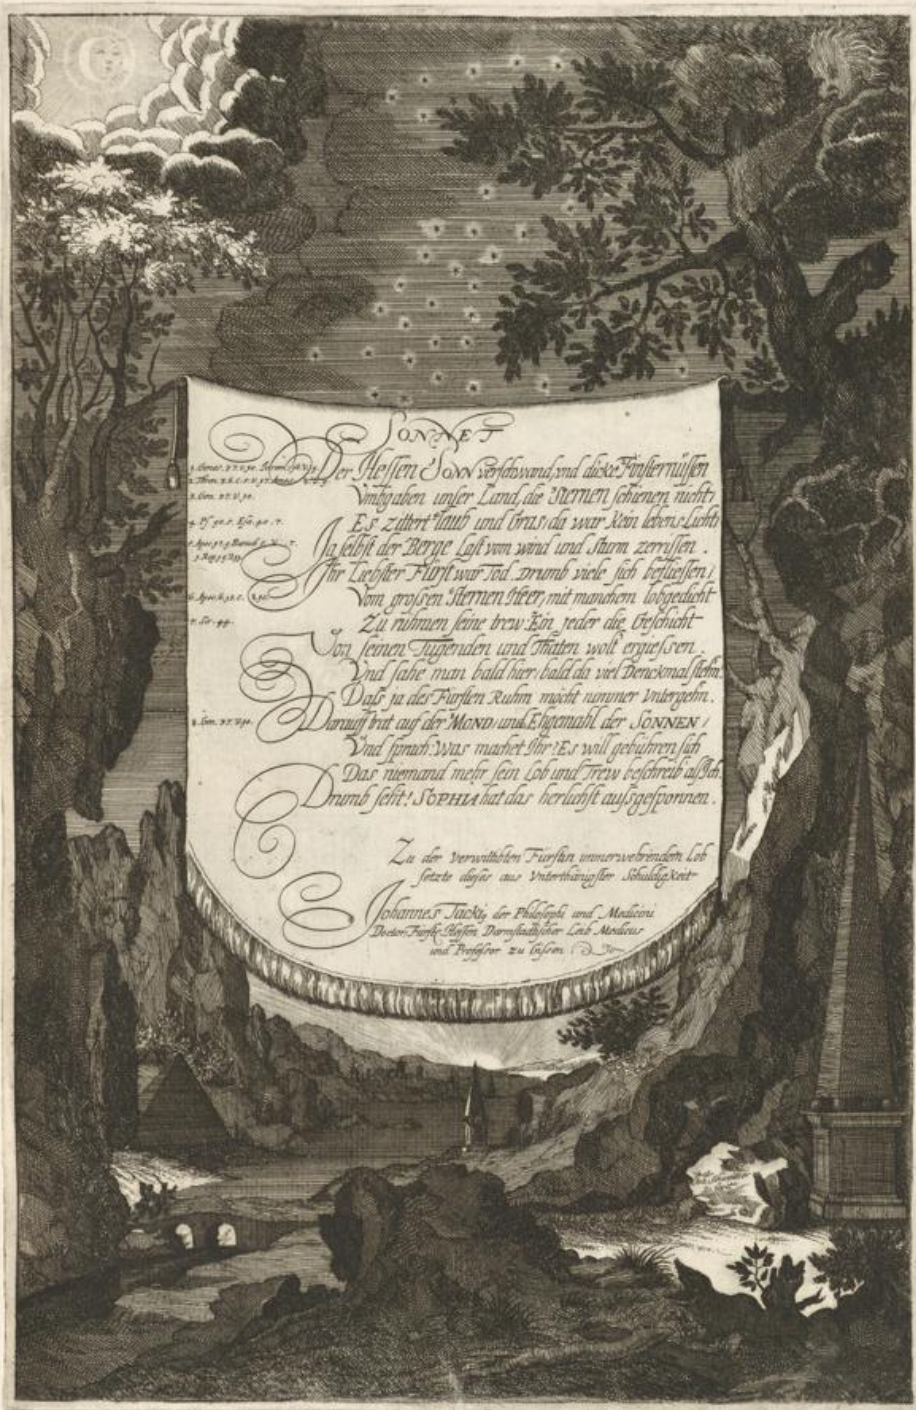 SONNET
Der Hessen SONN verschwand, vnd dicke Finsternüssen
Vmbgaben unser Land, die Sternen schienen nicht,
Es zittert Laub und Gras, da war kein lebens Licht,
Ja selbst der Berge Last vom wind und Sturm zerrissen.
Ihr Liebster Fürst war Tod. Drumb viele sich beflissen,
Vom grossen Sternen Heer, mit manchem lobgedicht
Zu rühmen seine trew. Ein jeder die Geschicht
Von seinen Tugenden und Thaten wolt ergiessen.
Vnd sahe man bald hier, bald da viel Denckmal stehn,
Dass ja des Fursten Ruhm möcht nimmer Vntergehn.
Darauff trat auf der MOND und Ehgemahl der SONNEN,
Vnd sprach: Was machet Ihr? Es will gebühren sich
Das niemand mehr sein Lob und Trew beschreib alss Ich.
Drumb seht! SOPHIA hat das herlichst aussgesponnen.
3. Gen. 37. V. 90.
7. Sir. 44.
Zu der verwittibten Fürstin immerwehrendem Lob
setzte dieses aus Vnterthänigster Schuldigkeit
Johannes Tacki, der Philosophi und Medicini
Doctor, Fürstl. Hessen Darmstadtischer Leib Medicus
und Professor zu Gissen